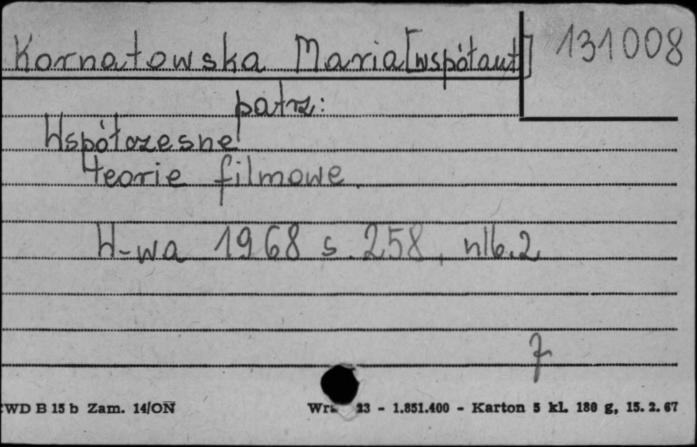 Kornatowska Maria [współaut] 131008
patrz:
Współczesne
teorie filmowe
W-wa 1968 s. 258, nlb. 2
CWD B 15 b Zam. 14/ON 23 - 1.851.400 - Karton 5 kl. 180 g, 15. 2. 67